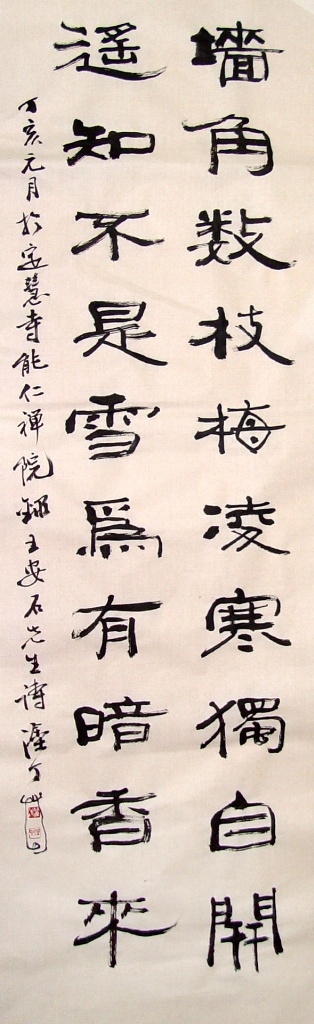 墻角数枝梅凌寒獨自開
遥知不是雪爲有暗香來
丁亥元月於定慧寺能仁禪院錄王安石先生詩